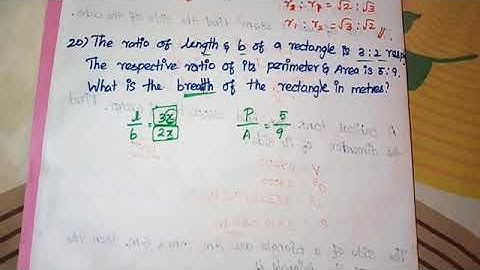 r₂ : r₁ = √2 : √3
r₁ : r₂ = √3 : √2 //
20) The ratio of length & b of a rectangle is 3 : 2 resp
The respective ratio of its perimeter & Area is 5 : 9.
What is the breath of the rectangle in metres?
l/b = 3x/2x P/A = 5/9